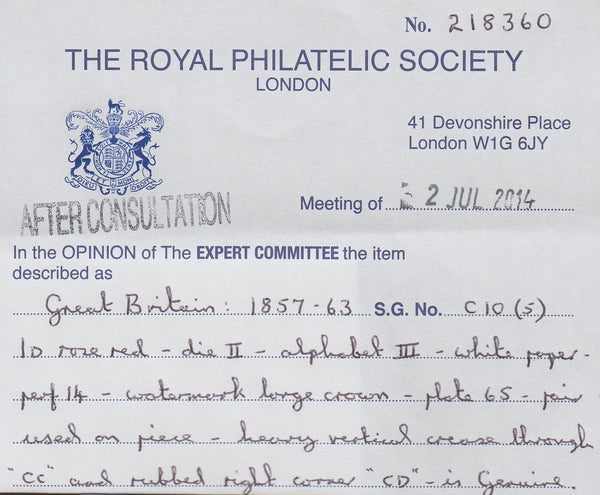 No. 218360
THE ROYAL PHILATELIC SOCIETY
LONDON
41 Devonshire Place
London W1G 6JY
AFTER CONSULTATION
Meeting of 2 JUL 2014
In the OPINION of The EXPERT COMMITTEE the item
described as
Great Britain: 1857-63 S.G. No. C10 (5)
1D rose red - die II - alphabet III - white paper -
perf 14 - watermark large crown - plate 65 - pair
used on piece - heavy vertical crease through
"CC" and rubbed right corner "CD" - is Genuine.